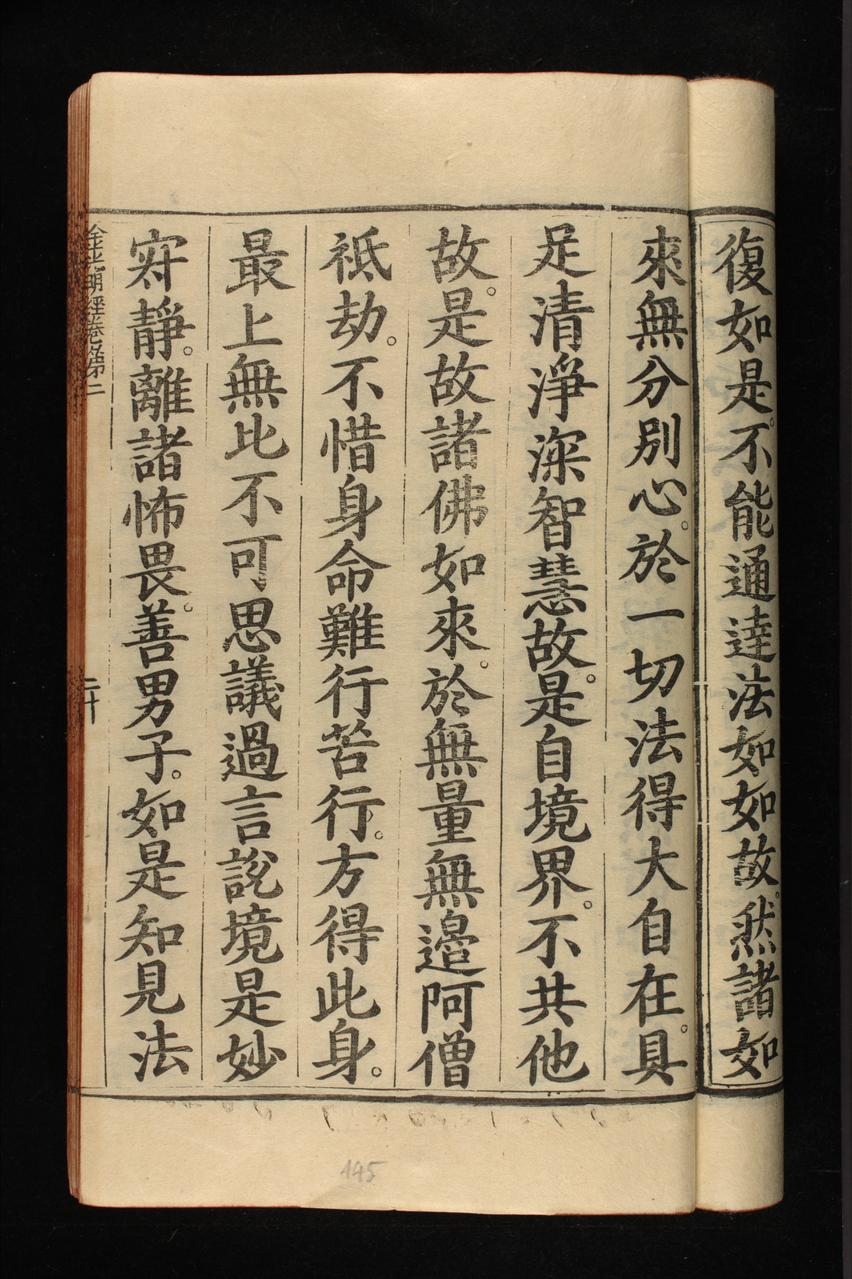 復如是。不能通達法如如故。然諸如
來無分别心。於一切法得大自在。具
足清淨深智慧故。是自境界。不共他
故。是故諸佛如來。於無量無邊阿僧
祇劫。不惜身命難行苦行。方得此身。
最上無比不可思議過言說境是妙
寂靜。離諸怖畏。善男子。如是知見法
金光明經卷第二
二十
145